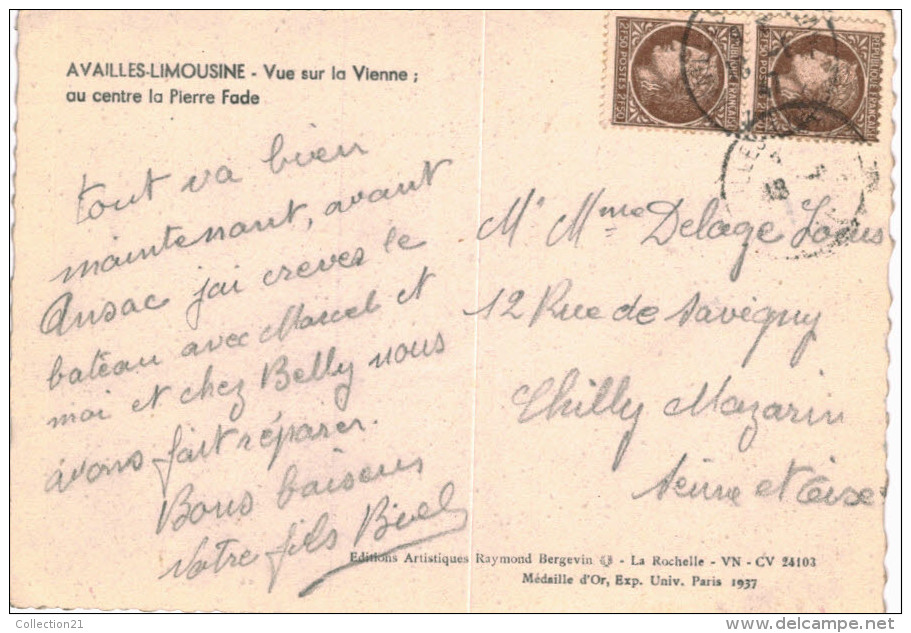 AVAILLES-LIMOUSINE - Vue sur la Vienne ;
au centre la Pierre Fade
2F50 POSTES 2F50
REPUBLIQUE FRANÇAISE
tout va bien
maintenant, avant
Ansac j'ai creves le
bateau avec Marcel et
moi et chez Belly nous
avons fait réparer.
Bons baisers
Votre fils
Mr Mme Delage Louis
12 Rue de Savigny
Chilly Mazarin
Seine et Oise
Editions Artistiques Raymond Bergevin - La Rochelle - VN - CV 24103
Médaille d'Or, Exp. Univ. Paris 1937
Collection21
www.delcampe.net